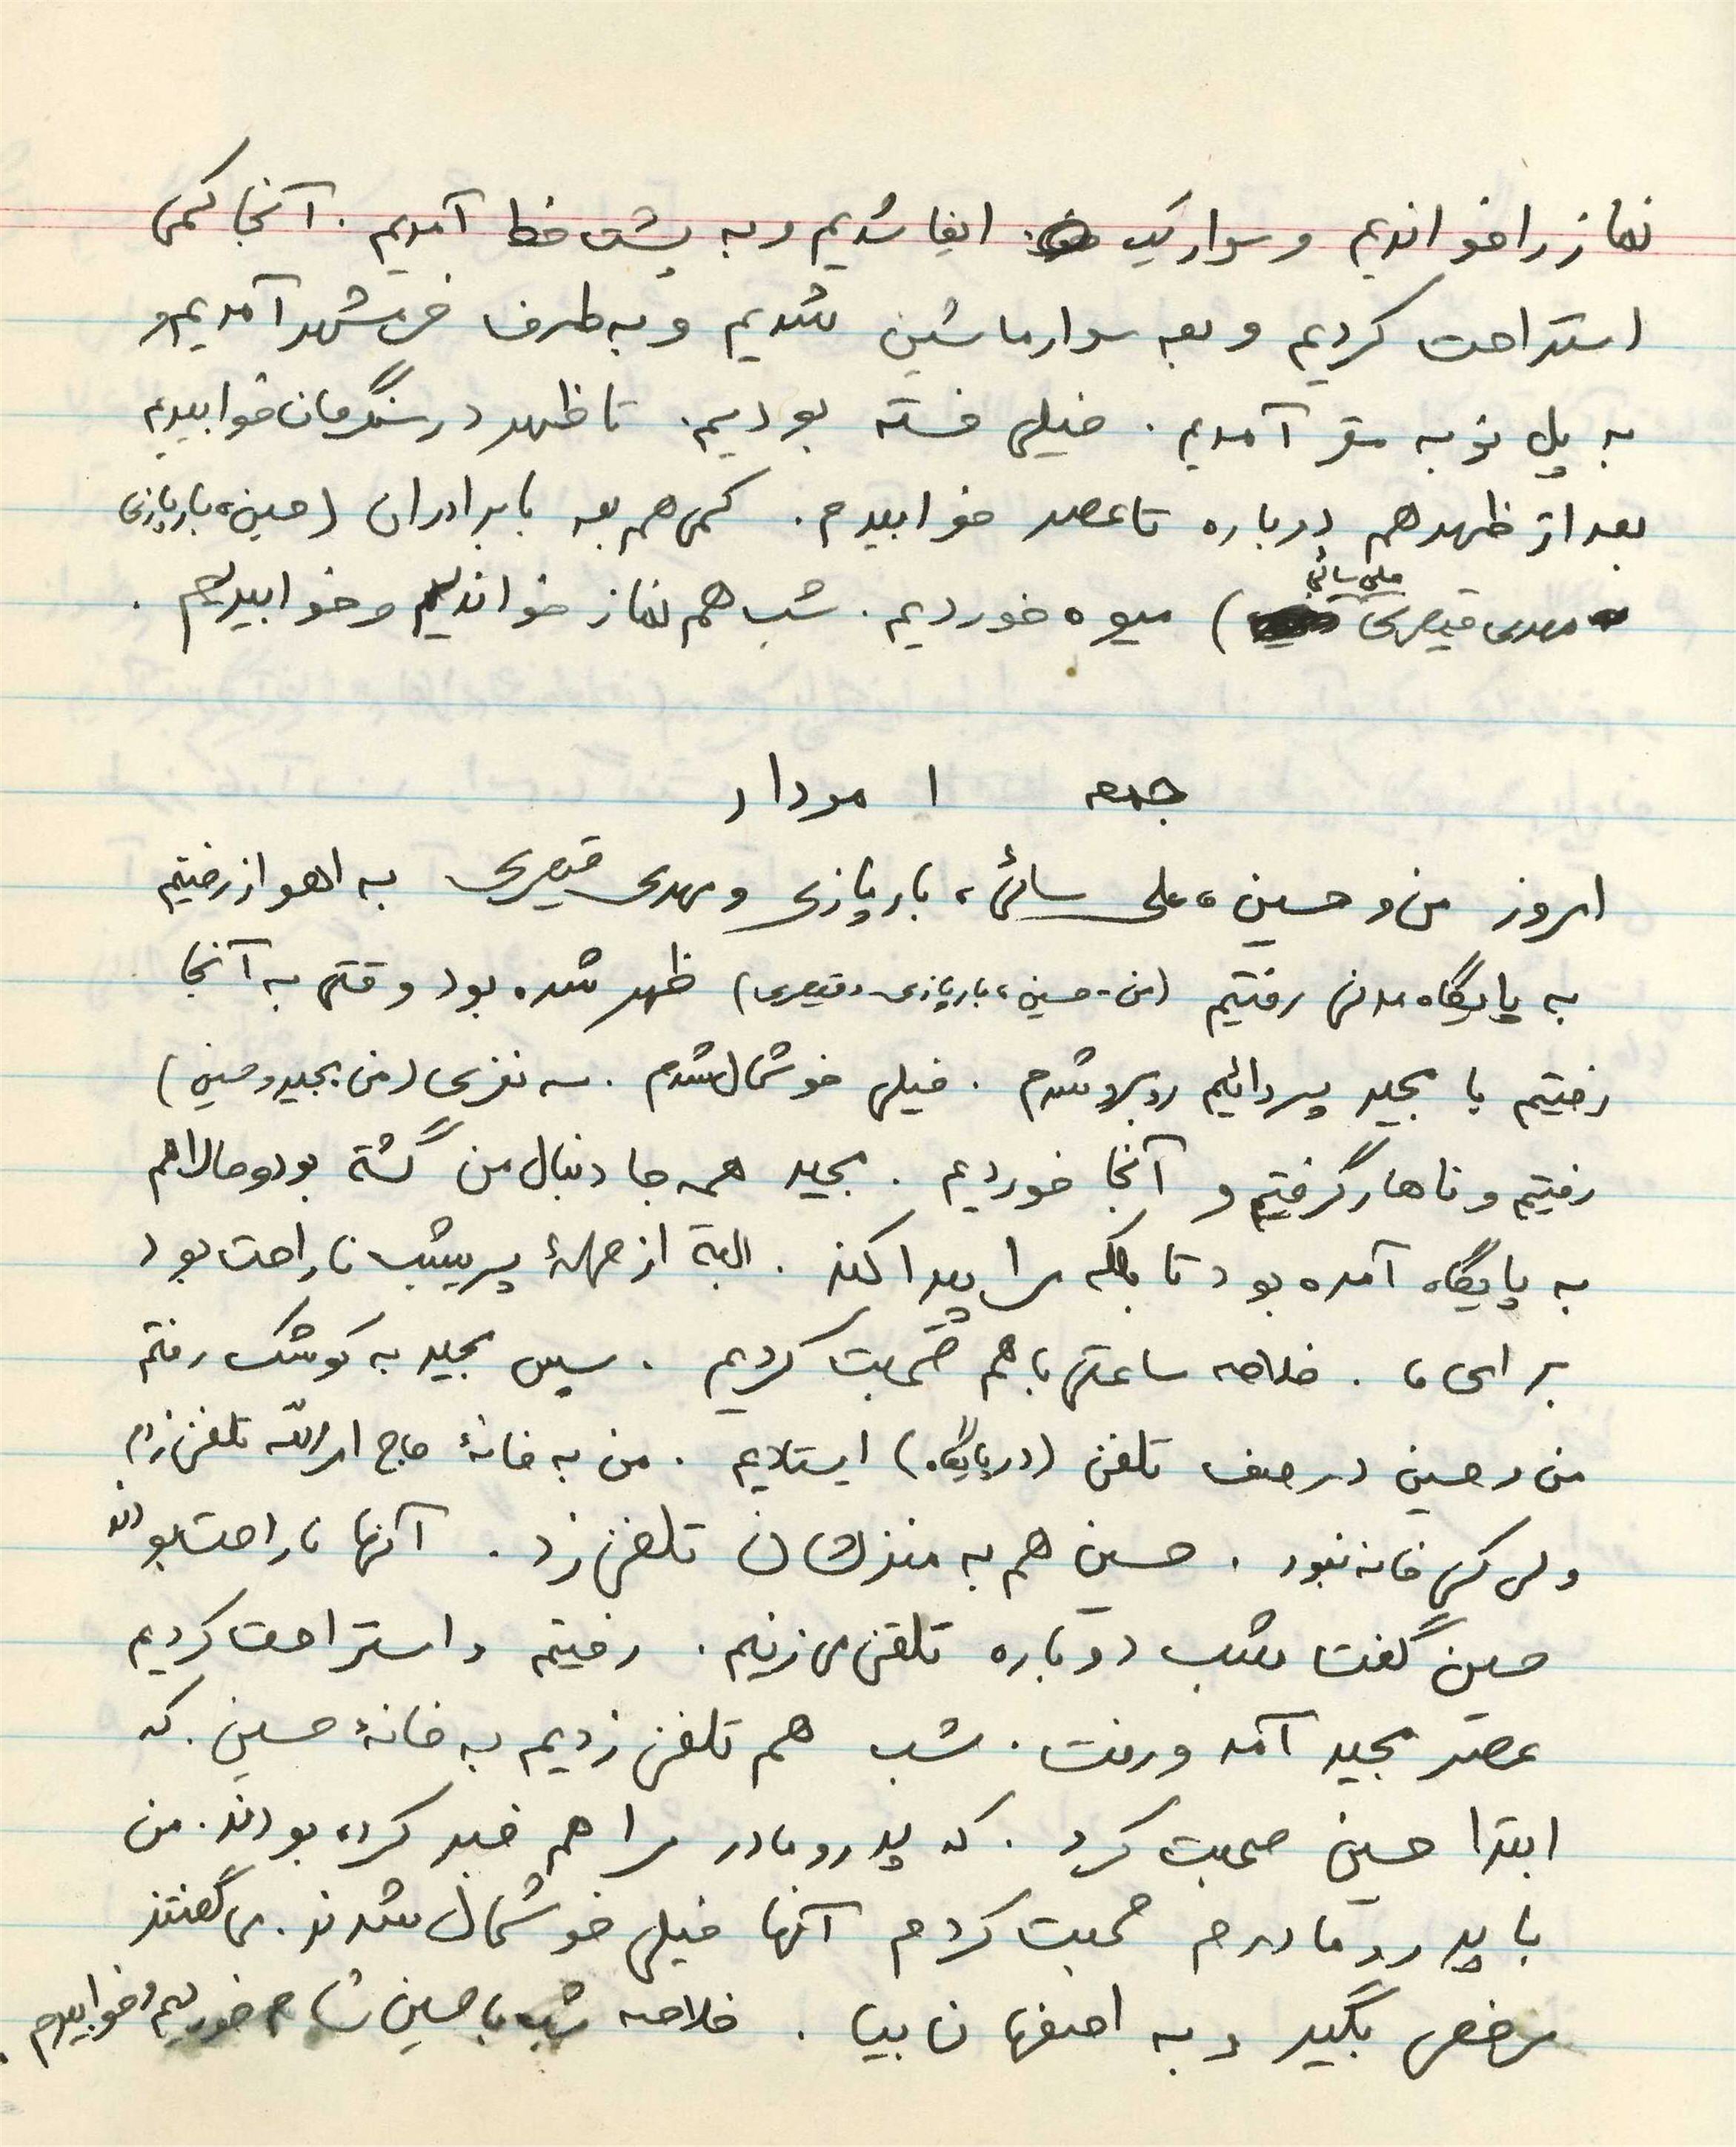 نماز را خواندیم و سوار یک ایفا شدیم و به پشت خط آمدیم . آنجا کمی
استراحت کردیم و بعد سوار ماشین شدیم و به طرف خرمشهر آمدیم و
به پل نو به مقر آمدیم . خیلی خسته بودیم . تا ظهر در سنگرمان خوابیدیم
بعد از ظهر هم دوباره تا عصر خوابیدم . کمی هم بعد با برادران ( حسین ، بارپازی
مهدی قیصری علی سائی ) میوه خوردیم . شب هم نماز خواندیم و خوابیدیم .
جمعه ۱ مرداد
امروز من و حسین ، علی سائی ، بارپازی و مهدی قیصری به اهواز رفتیم
به پایگاه مدنی رفتیم ( من - حسین ، بارپازی و قیصری ) ظهر شده بود وقتی به آنجا
رفتیم با مجید پسردائیم روبرو شدم . خیلی خوشحال شدم . سه نفری ( من ، مجید و حسین )
رفتیم و ناهار گرفتیم و آنجا خوردیم . مجید همه جا دنبال من گشته بود و حالا هم
به پایگاه آمده بود تا بلکه مرا پیدا کند . البته از حملۀ پریشب ناراحت بود
برای ما . خلاصه ساعتی با هم صحبت کردیم . سپس مجید به کوشک رفت
من و حسین در صف تلفن ( در پایگاه ) ایستادیم . من به خانۀ حاج امرالله تلفن زدم
ولی کسی خانه نبود . حسین هم به منزلشان تلفن زد . آنها ناراحت بودند
حسین گفت شب دوباره تلفن می زنیم . رفتیم و استراحت کردیم
عصر مجید آمد و رفت . شب هم تلفن زدیم به خانۀ حسین . که
ابتدا حسین صحبت کرد . که پدر و مادر مرا هم خبر کرده بودند . من
با پدر و مادرم صحبت کردم آنها خیلی خوشحال شدند . می گفتند
مرخصی بگیر و به اصفهان بیا . خلاصه شب با حسین شام خوردیم و خوابیدم .